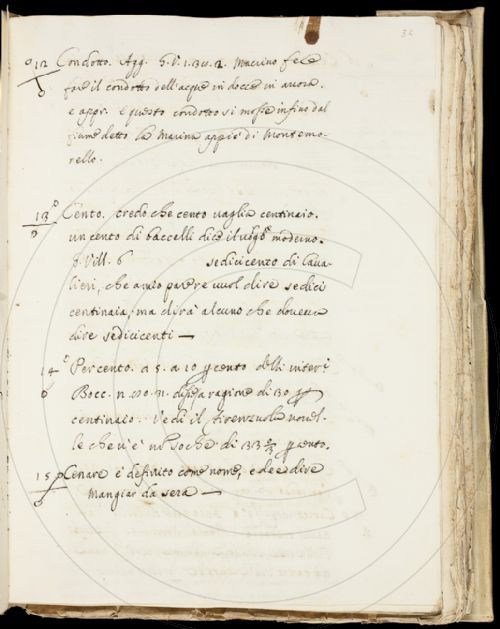 32
12 Condotto. Agg. G. V. 1. 38. 2. Macrino fece
fare il condotto dell'acque in docce in arcora.
e appr. e questo condotto si mosse infino dal
fiume detto la Marina appiè di Montemo-
rello.
13 Cento. credo che cento vaglia centinaio.
un cento di baccelli dice il volgo moderno.
G. Vill. 6 sedicicento di Cava-
lieri, che a mio parere vuol dire sedici
centinaia, ma dirà alcuno che doveva
dire sedicicenti —
14 Per cento. a 5. a 10 per cento
Bocc. n. a ragione di 30 per
centinaio. Vedi il Firenzuola novel-
le che v'è di 33 per cento.
15 Cenare è definito come nome, e dee dire
mangiar da sera —